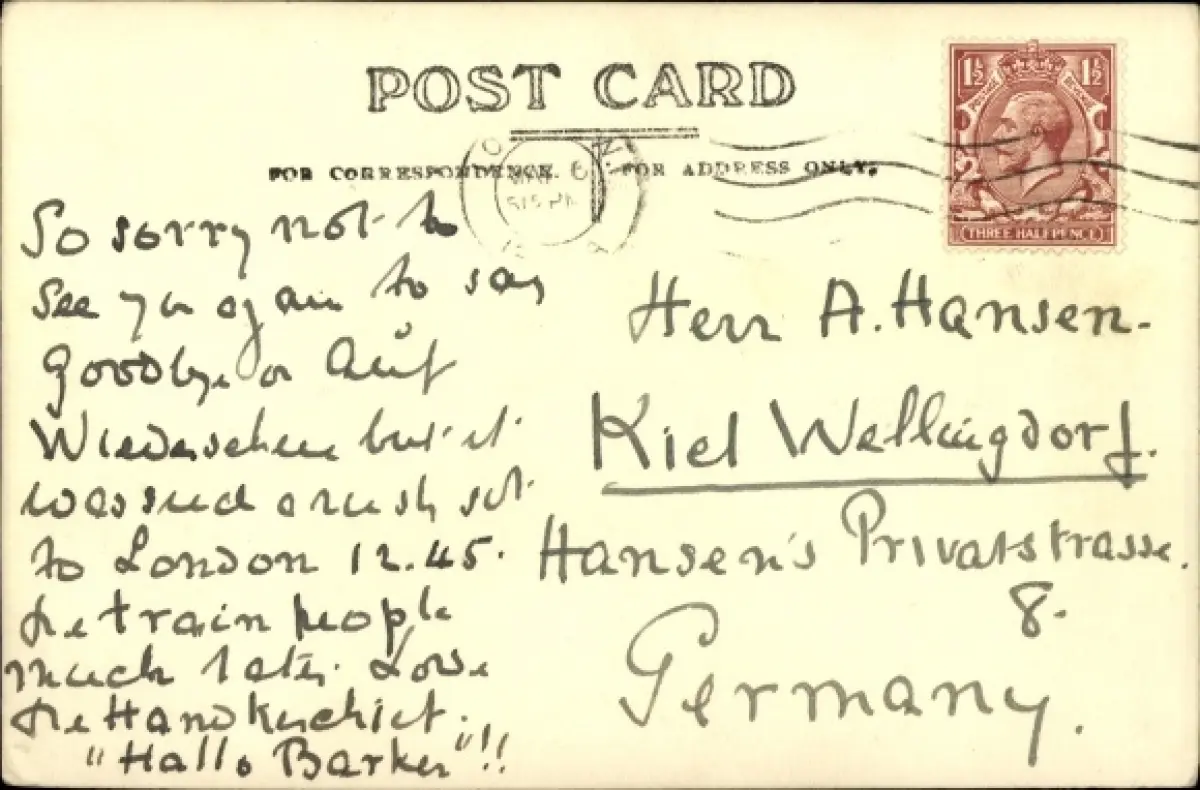 POST CARD
FOR CORRESPONDENCE.
FOR ADDRESS ONLY.
1½ 1½
POSTAGE REVENUE
THREE HALFPENCE
So sorry not to
see you again to say
Goodbye or Auf
Wiedersehen but it
was such a rush
to London 12.45.
the train people
much later. Love
the Handkerchief.
"Hallo Barker"!!
Herr A. Hansen.
Kiel Wellingdorf.
Hansen's Privatstrasse.
8.
Germany.